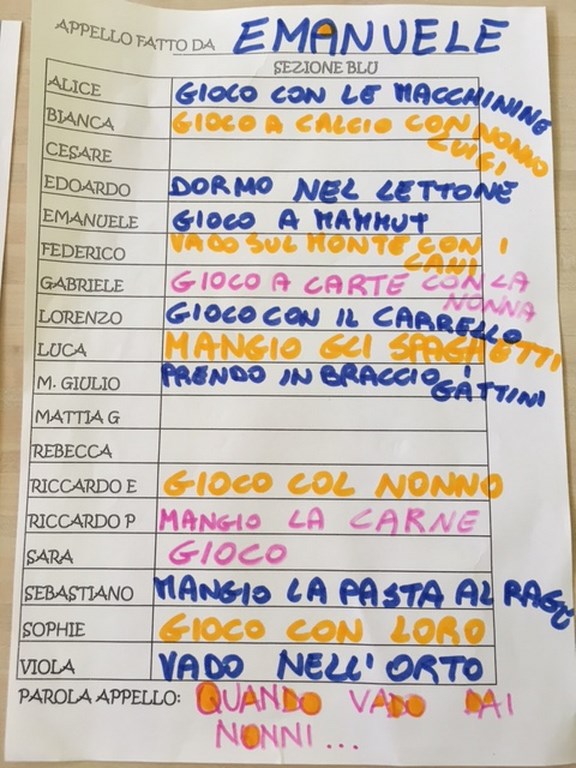 APPELLO FATTO DA EMANUELE
SEZIONE BLU
ALICE GIOCO CON LE MACCHININE
BIANCA GIOCO A CALCIO CON NONNO LUIGI
CESARE
EDOARDO DORMO NEL LETTONE
EMANUELE GIOCO A MAMMUT
FEDERICO VADO SUL MONTE CON I CANI
GABRIELE GIOCO A CARTE CON LA NONNA
LORENZO GIOCO CON IL CARRELLO
LUCA MANGIO GLI SPAGHETTI
M. GIULIO PRENDO IN BRACCIO I GATTINI
MATTIA G
REBECCA
RICCARDO E GIOCO COL NONNO
RICCARDO P MANGIO LA CARNE
SARA GIOCO
SEBASTIANO MANGIO LA PASTA AL RAGÙ
SOPHIE GIOCO CON LORO
VIOLA VADO NELL'ORTO
PAROLA APPELLO: QUANDO VADO DAI
NONNI...